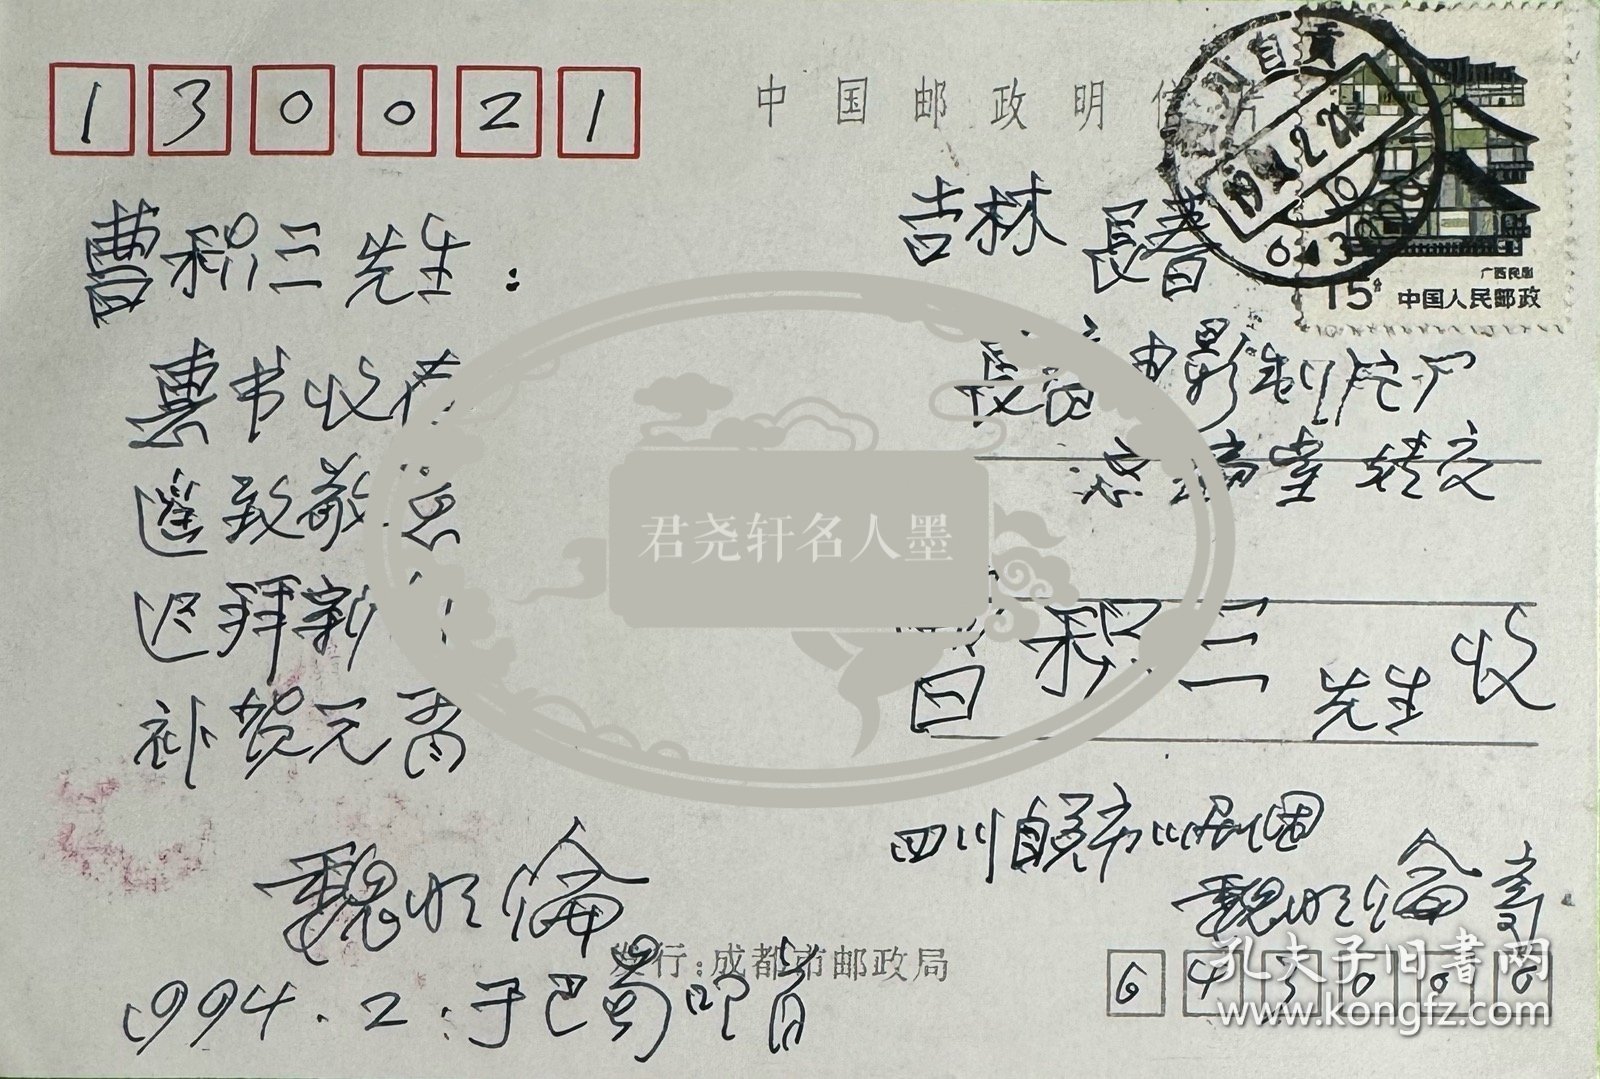 130021
中国邮政明信片
四川自贡
1994.2.2
10
643000
广西民居
15分 中国人民邮政
曹积三 先生：
惠书收
遥致敬
迟拜新
补贺元宵
魏明倫
1994.2.于巴蜀
吉林 長春
長春电影制片厂
請交
曹积三 先生 收
四川自贡市川剧团
魏明倫 寄
发行：成都市邮政局
643000
君尧轩名人墨
孔夫子旧書网
www.kongfz.com